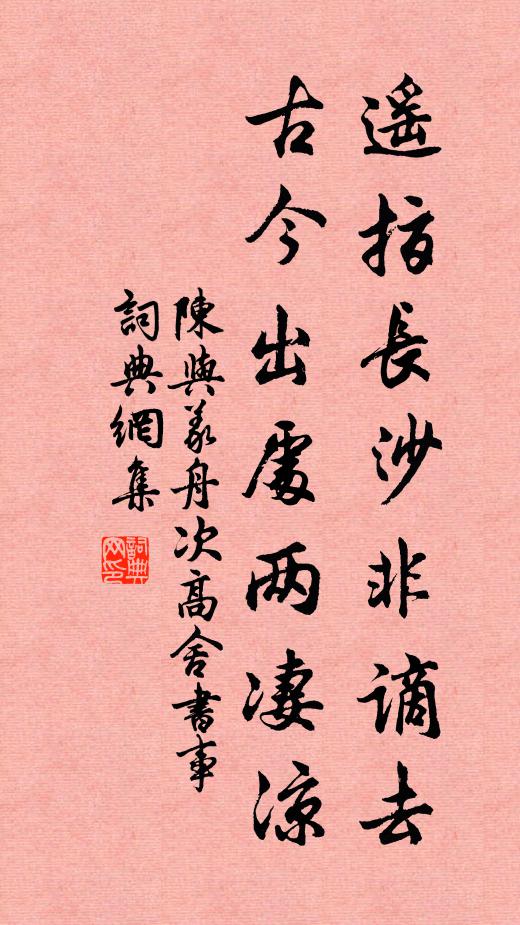 遥指長沙非謫去
古今出處两凄涼
陳與義舟次高舍書事
詞典網集
詞典网印